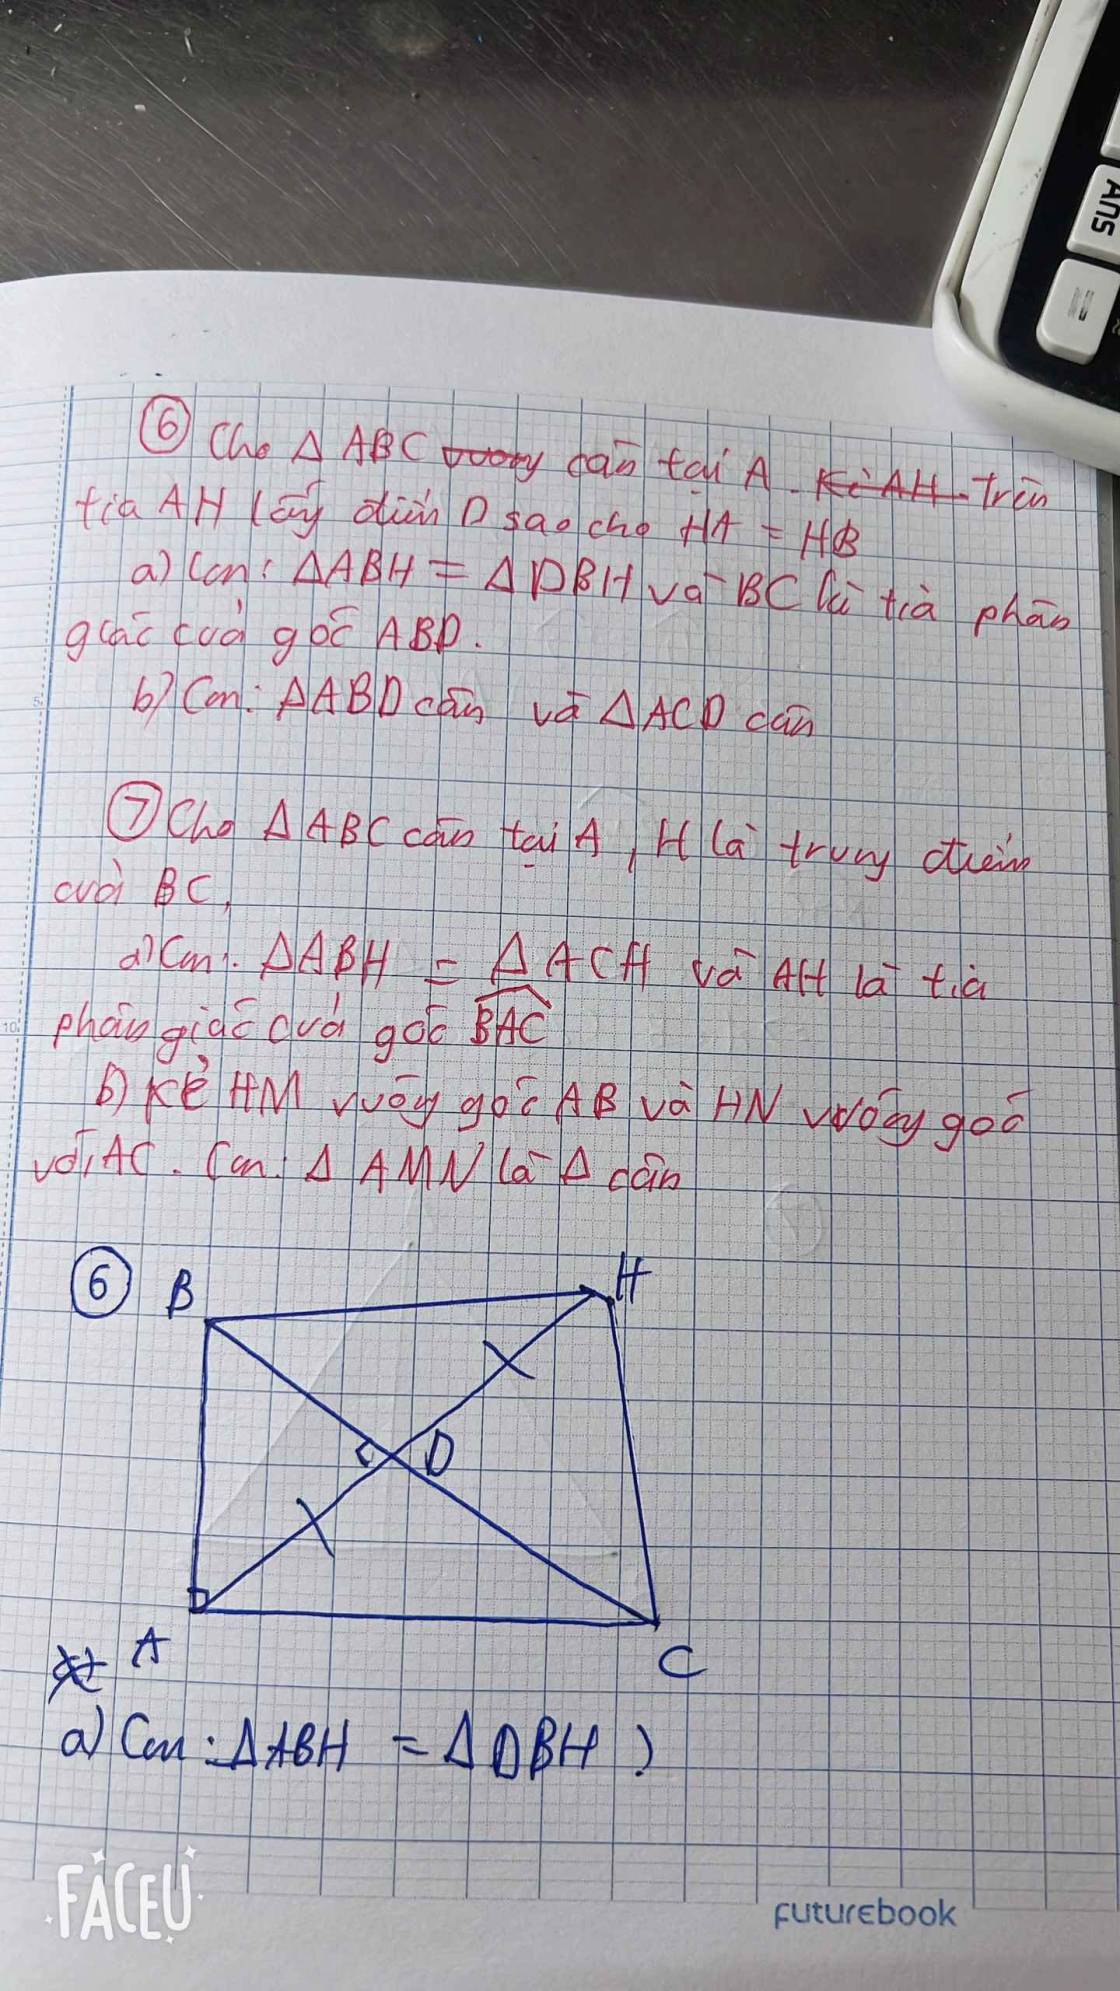 Ans
=
⑥ Cho Δ ABC vuông cân tại A. Kẻ AH. Trên
tia AH lấy điểm D sao cho HA = HB
a) Cm: ΔABH = ΔDBH và BC là tià phân
giác cuả góc ABD.
b) Cm: ΔABD cân và ΔACD cân
⑦ Cho ΔABC cân tại A, H là trung điểm
cuả BC,
a) Cm: ΔABH = ΔACH và AH là tià
phân giác cuả góc BAC
b) Kẻ HM vuông góc AB và HN vuông góc
với AC. Cm: Δ AMN là Δ cân
⑥ B H
D
A C
a) Cm: ΔABH = ΔDBH )
FACEU
futurebook